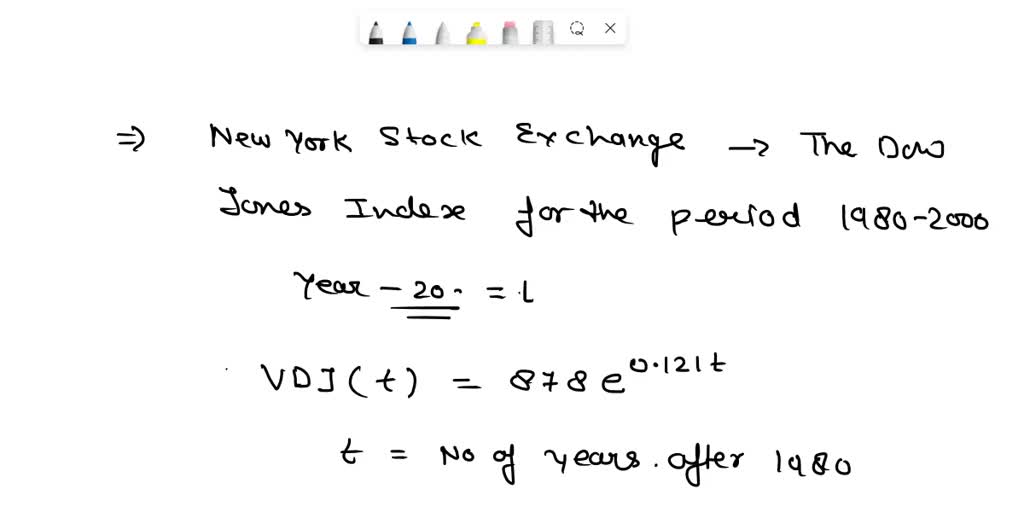 ⇒ New York Stock Exchange → The Dow
Jones Index for the period 1980-2000
Year - 20. = t
VDJ(t) = 878 e^0.121t
t = No of years. after 1980